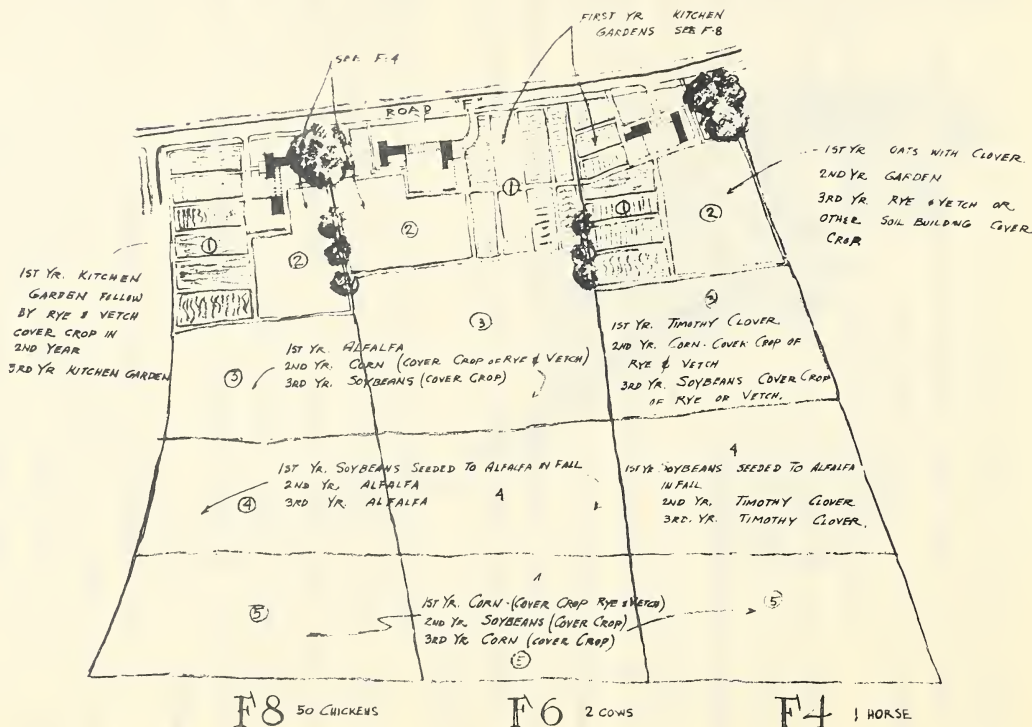 FIRST YR. KITCHEN
GARDENS SEE F-8
SEE F-4
ROAD "F"
1ST YR. OATS WITH CLOVER
2ND YR. GARDEN
3RD YR. RYE & VETCH OR
OTHER SOIL BUILDING COVER
CROP
1
2
2
1
1
2
1ST YR. KITCHEN
GARDEN FOLLOW
BY RYE & VETCH
COVER CROP IN
2ND YEAR
3RD YR KITCHEN GARDEN
3
1ST YR. ALFALFA
2ND YR. CORN (COVER CROP OF RYE & VETCH)
3RD YR. SOYBEANS (COVER CROP)
3
1ST YR. TIMOTHY CLOVER
2ND YR. CORN-COVER CROP OF
RYE & VETCH
3RD YR. SOYBEANS COVER CROP
OF RYE OR VETCH.
4
1ST YR. SOYBEANS SEEDED TO ALFALFA IN FALL
2ND YR. ALFALFA
3RD YR. ALFALFA
4
4
1ST YR. SOYBEANS SEEDED TO ALFALFA
IN FALL
2ND YR. TIMOTHY CLOVER
3RD. YR. TIMOTHY CLOVER.
5
1ST YR. CORN-(COVER CROP RYE & VETCH)
2ND YR. SOYBEANS (COVER CROP)
3RD YR. CORN (COVER CROP)
5
F8 50 CHICKENS
F6 2 COWS
F4 1 HORSE